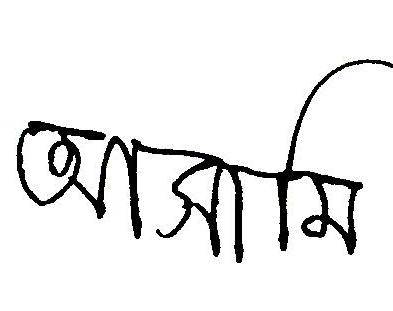 আসামি